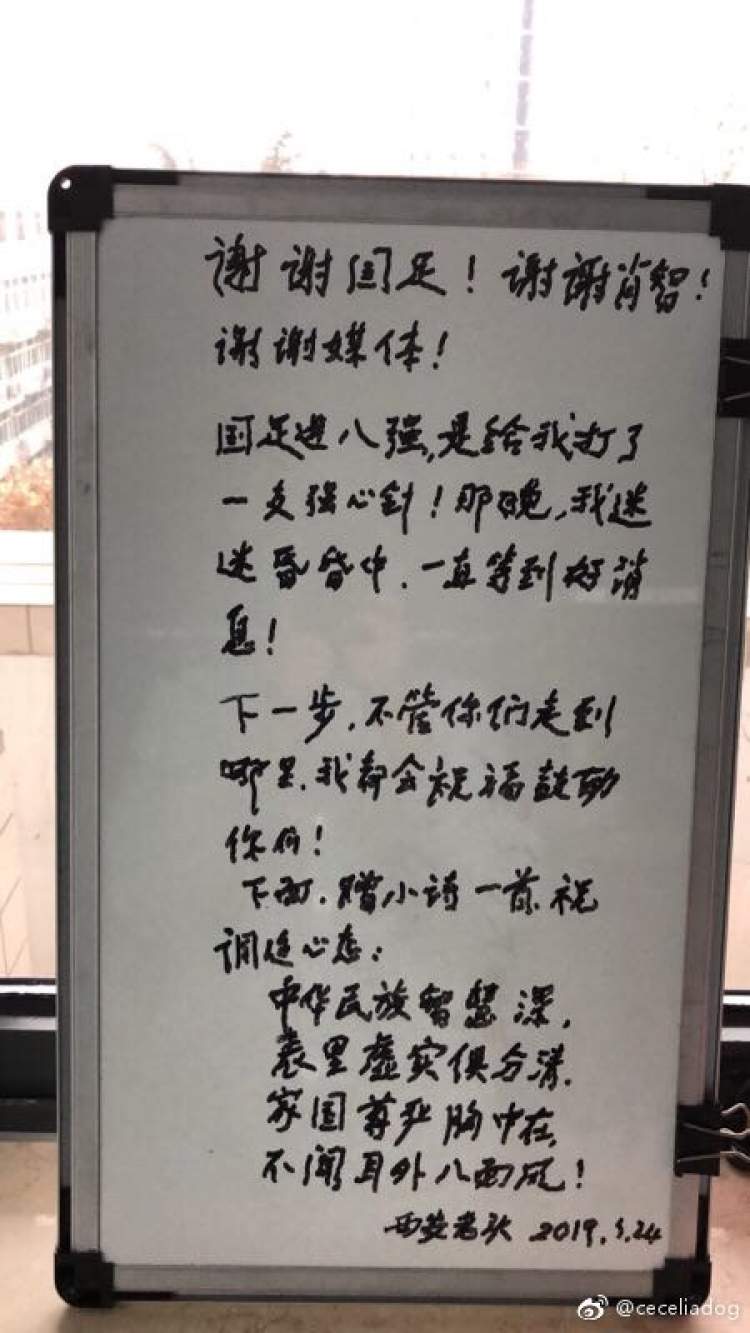 谢谢国足！谢谢肖智！
谢谢媒体！
国足进八强,是给我打了
一支强心针！那晚,我迷
迷昏昏中,一直等到好消
息！
下一步,不管你们走到
哪里,我都会祝福鼓励
你们！
下面,赠小诗一首祝
调适心态：
中华民族智慧深,
表里虚实俱分清.
家国尊严胸中在,
不闻耳外八面风！
西安老头 2019.3.24
@ceceliadog